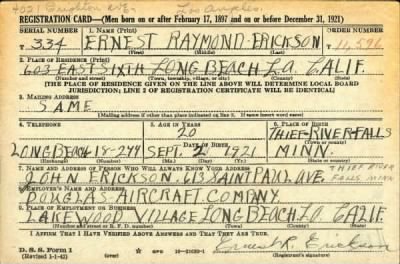 4021 Brighton Ave. Los Angeles.
REGISTRATION CARD—(Men born on or after February 17, 1897 and on or before December 31, 1921)
SERIAL NUMBER 1. NAME (Print) ORDER NUMBER
T 334 ERNEST RAYMOND ERICKSON 11,596
(First) (Middle) (Last)
2. PLACE OF RESIDENCE (Print)
603 EAST SIXTH LONG BEACH L.A. CALIF.
(Number and street) (Town, township, village, or city) (County) (State)
[THE PLACE OF RESIDENCE GIVEN ON THE LINE ABOVE WILL DETERMINE LOCAL BOARD
JURISDICTION; LINE 2 OF REGISTRATION CERTIFICATE WILL BE IDENTICAL]
3. MAILING ADDRESS
SAME
[Mailing address if other than place indicated on line 2. If same insert word same]
4. TELEPHONE 5. AGE IN YEARS 6. PLACE OF BIRTH
20 THIEF RIVER FALLS
DATE OF BIRTH (Town or county)
LONG BEACH 18-279 SEPT. 1921 MINN.
(Exchange) (Number) (Mo.) (Day) (Yr.) (State or country)
7. NAME AND ADDRESS OF PERSON WHO WILL ALWAYS KNOW YOUR ADDRESS THIEF RIVER
JOHN ERICKSON 613 SAINT PAUL AVE. FALLS MINN
8. EMPLOYER'S NAME AND ADDRESS
DOUGLAS AIRCRAFT COMPANY
9. PLACE OF EMPLOYMENT OR BUSINESS
LAKEWOOD VILLAGE LONG BEACH L.A. CALIF.
(Number and street or R. F. D. number) (Town) (County) (State)
I AFFIRM THAT I HAVE VERIFIED ABOVE ANSWERS AND THAT THEY ARE TRUE.
D. S. S. Form 1
(Revised 1-1-42) (over) Ernest R. Erickson
(Registrant's signature)